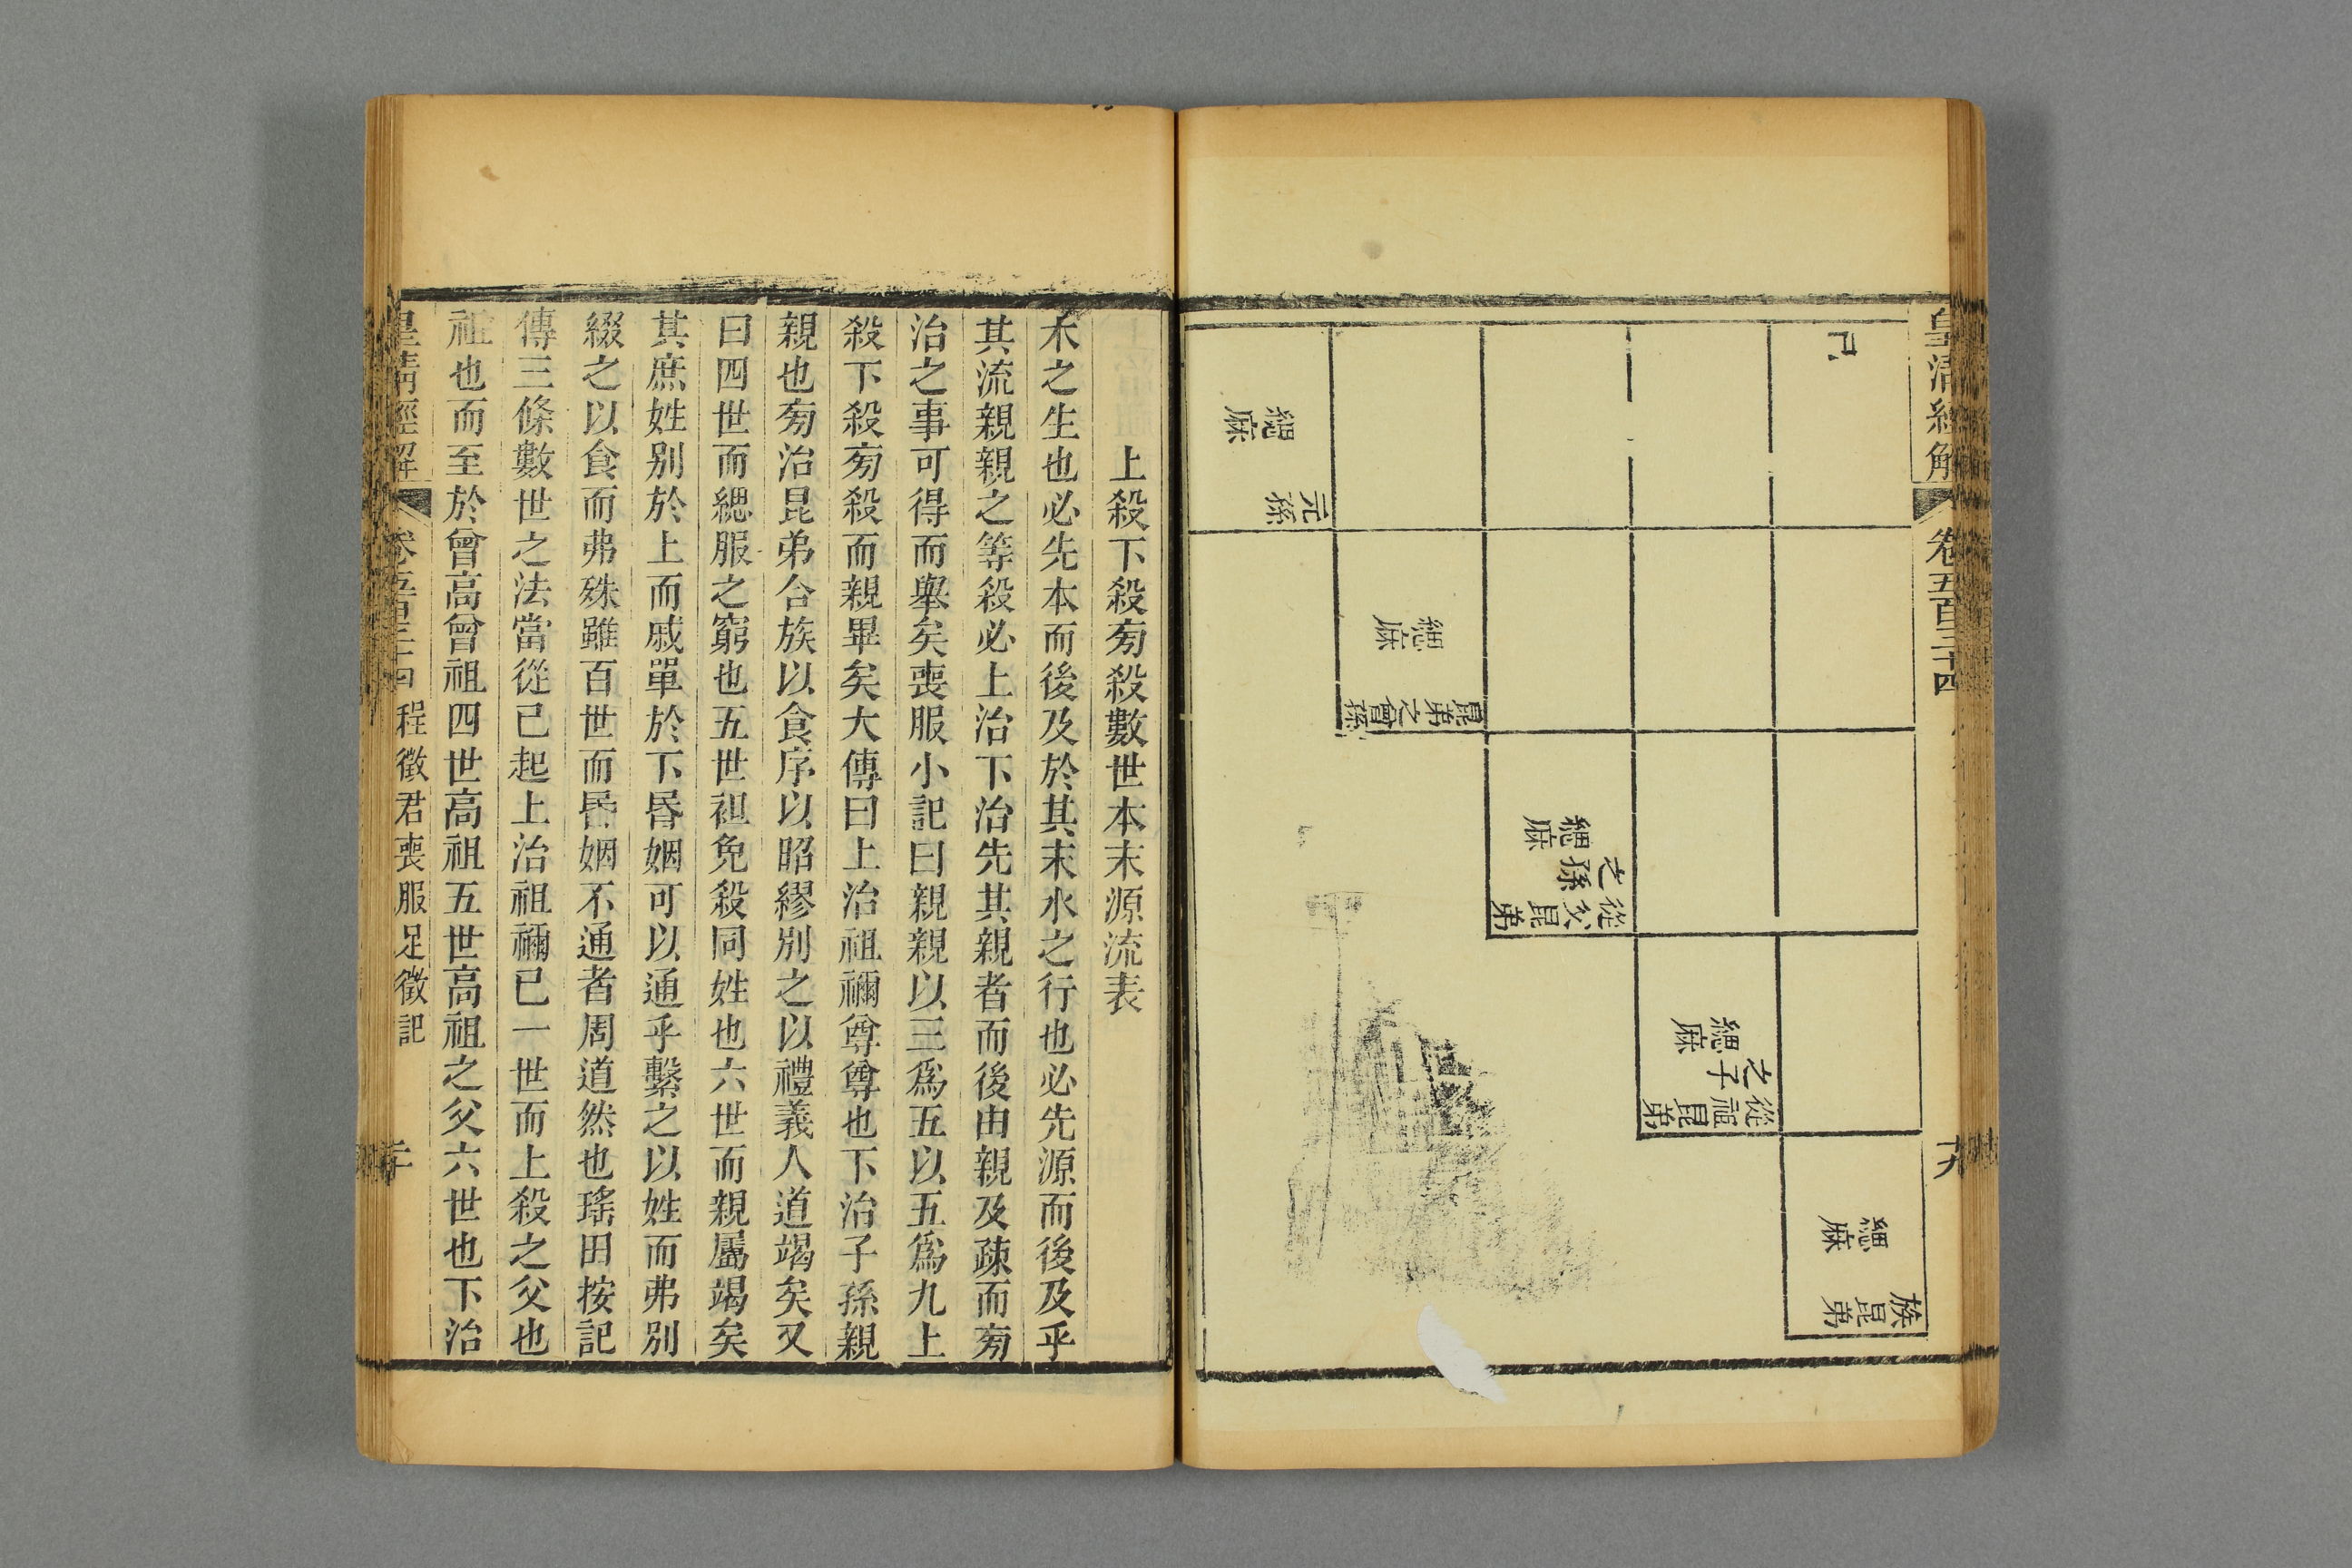 皇清經解
卷五百二十四
族昆弟
緦麻
從祖昆弟
之子
緦麻
從父昆弟
之孫
緦麻
昆弟之曾孫
緦麻
元孫
緦麻
上殺下殺旁殺數世本末源流表
木之生也必先本而後及於其末水之行也必先源而後及乎
其流親親之等殺必上治下治先其親者而後由親及疎而旁
治之事可得而舉矣喪服小記曰親親以三爲五以五爲九上
殺下殺旁殺而親畢矣大傳曰上治祖禰尊尊也下治子孫親
親也旁治昆弟合族以食序以昭繆別之以禮義人道竭矣又
曰四世而緦服之窮也五世袒免殺同姓也六世而親屬竭矣
其庶姓别於上而戚單於下昏姻可以通乎繫之以姓而弗別
綴之以食而弗殊雖百世而昏姻不通者周道然也瑤田按記
傳三條數世之法當從已起上治祖禰已一世而上殺之父也
祖也而至於曾高曾祖四世高祖五世高祖之父六世也下治
皇清經解 程徵君喪服足徵記